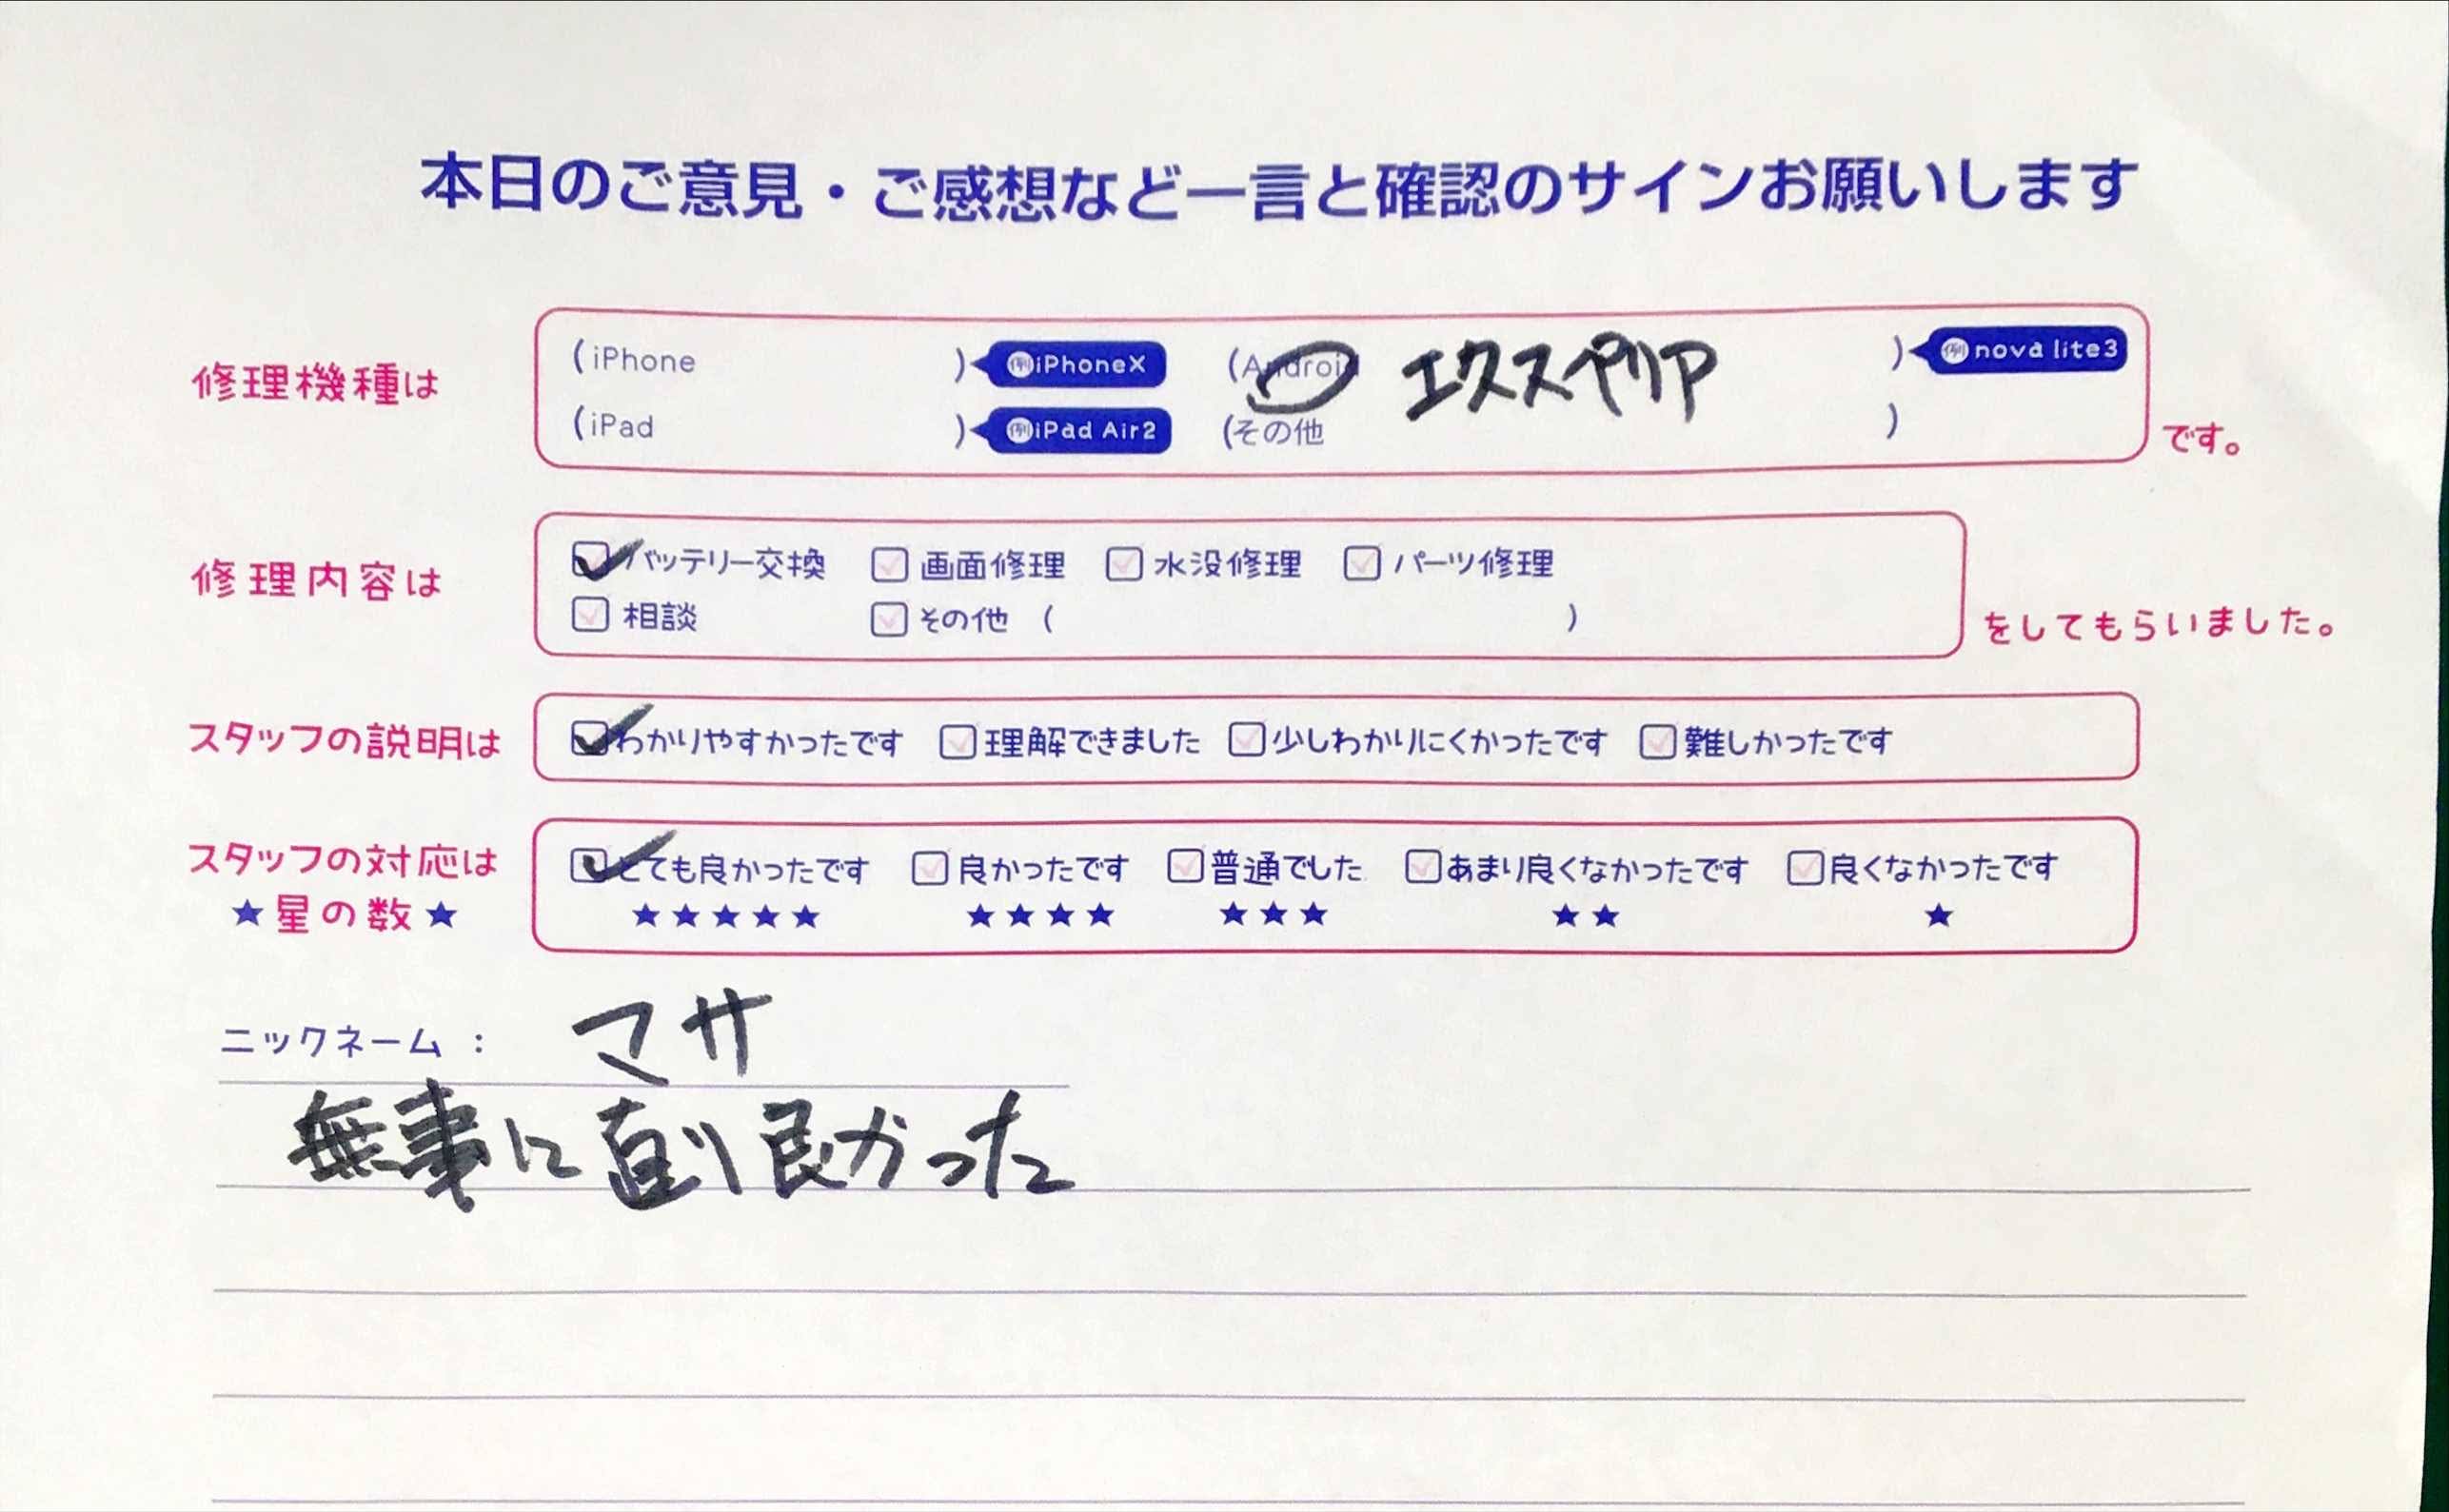 本日のご意見・ご感想など一言と確認のサインお願いします
修理機種は
(iPhone ) 例iPhoneX (Android エクスペリア ) 例nova lite3
(iPad ) 例iPad Air2 (その他 ) です。
修理内容は
バッテリー交換 画面修理 水没修理 パーツ修理
相談 その他 ( ) をしてもらいました。
スタッフの説明は わかりやすかったです 理解できました 少しわかりにくかったです 難しかったです
スタッフの対応は とても良かったです 良かったです 普通でした あまり良くなかったです 良くなかったです
★星の数★ ★★★★★ ★★★★ ★★★ ★★ ★
ニックネーム : マサ
無事に直り良かった